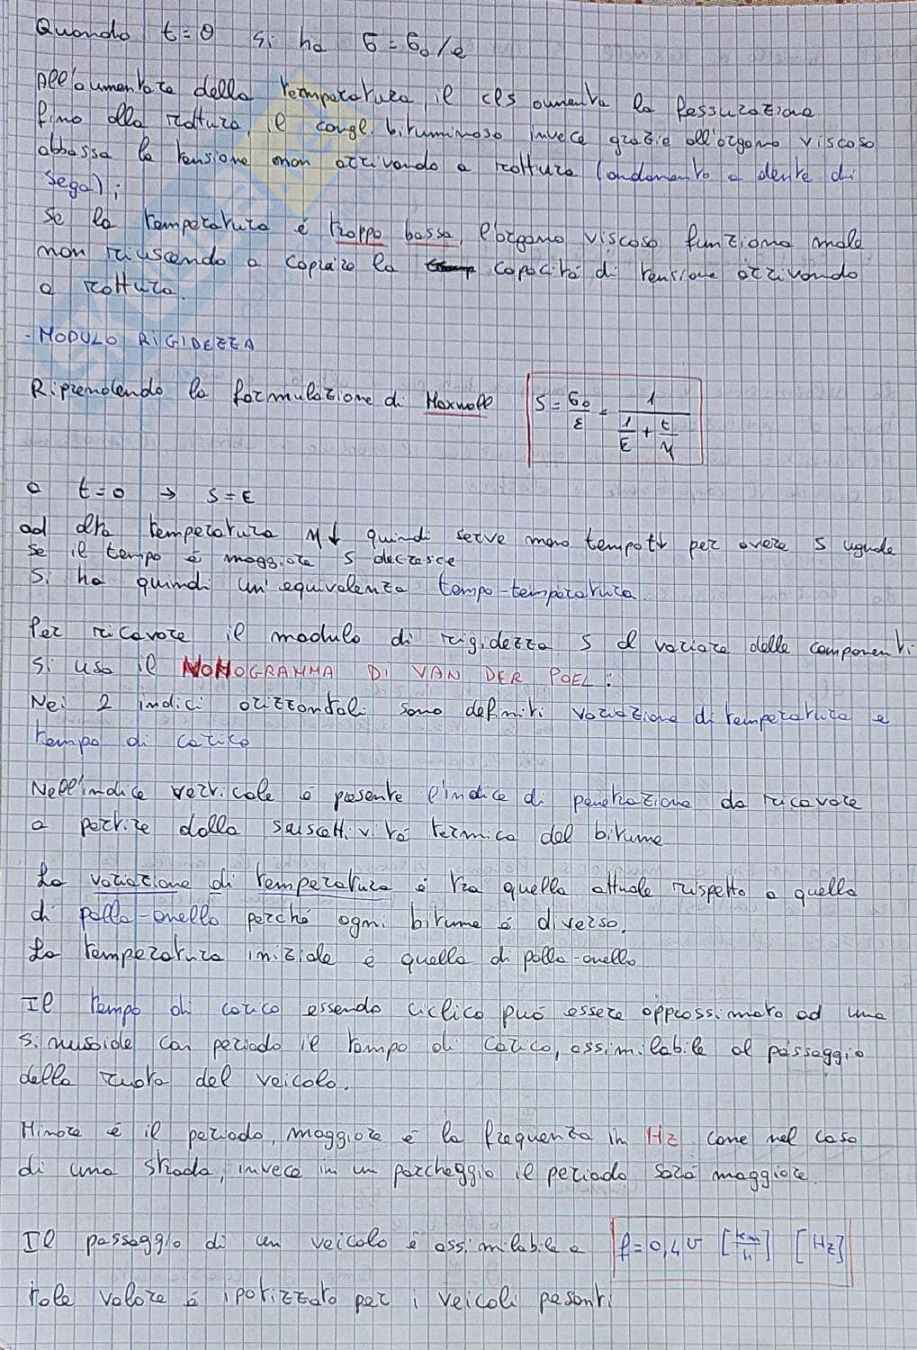 Quando t=θ si ha σ=σ₀/e
All'aumentare della temperatura, il cls aumenta la fessurazione
fino alla rottura, il congl. bituminoso invece grazie all'organo viscoso
abbassa la tensione non arrivando a rottura (andamento a dente di
sega);
Se la temperatura è troppo bassa, l'organo viscoso funziona male
non riuscendo a copiare la capacità di tensione arrivando
a rottura.
- MODULO RIGIDEZZA
Riprendendo la formulazione di Maxwell S = σ₀/ε = 1/(1/E + t/η)
a t=0 → S=E
ad alta temperatura η↓ quindi serve meno tempo t↓ per avere S uguale
se il tempo è maggiore S decresce
Si ha quindi un'equivalenza tempo-temperatura
Per ricavare il modulo di rigidezza S al variare delle componenti
si usa il NOMOGRAMMA DI VAN DER POEL:
Nei 2 indici orizzontali sono definiti variazione di temperatura e
tempo di carico
Nell'indice verticale è presente l'indice di penetrazione da ricavare
a partire dalla suscettività termica del bitume
La variazione di temperatura è tra quella attuale rispetto a quella
di palla-anello perché ogni bitume è diverso.
La temperatura iniziale è quella di palla-anello
Il tempo di carico essendo ciclico può essere approssimato ad una
sinusoide con periodo il tempo di carico, assimilabile al passaggio
della ruota del veicolo.
Minore è il periodo, maggiore è la frequenza in Hz come nel caso
di una strada, invece in un parcheggio il periodo sarà maggiore
Il passaggio di un veicolo è assimilabile a f=0,4 v [km/h] [Hz]
tale valore è ipotizzato per i veicoli pesanti